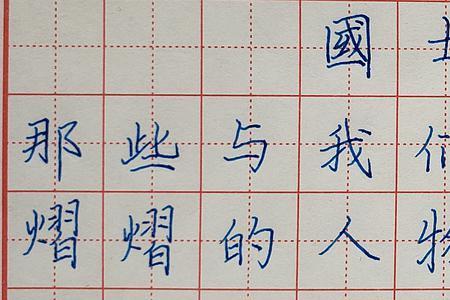 國
那些与我
熠熠的人